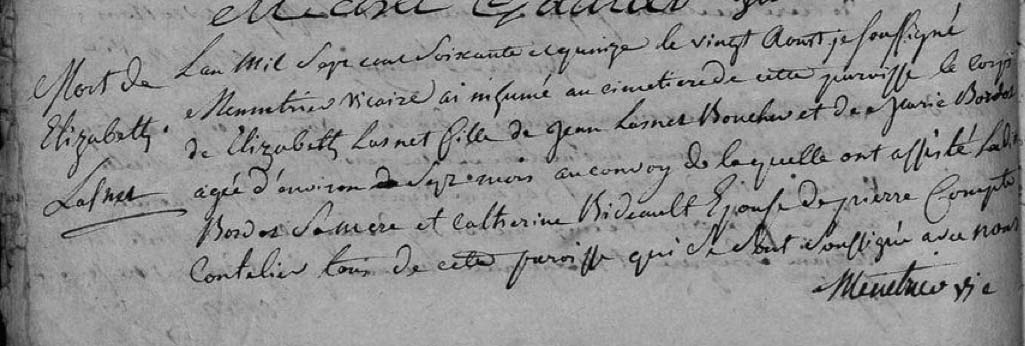 Mort de
Elizabeth
Lasnet
L'an Mil Sept cent Soixante et quinze le vingt Aoust je soussigné
Menetrier vicaire ai inhumé au cimetiere de cette paroisse le corps
de Elizabeth Lasnet fille de Jean Lasnet Boucher et de Marie Bordes
agée d'environ Sept mois au convoy de laquelle ont assisté Ladi
Bordes Sa mere et Catherine Bideault Epouse de pierre Compte
Contelier tous de cette paroisse qui Se sont soussignée avec nous
Menetrier vic